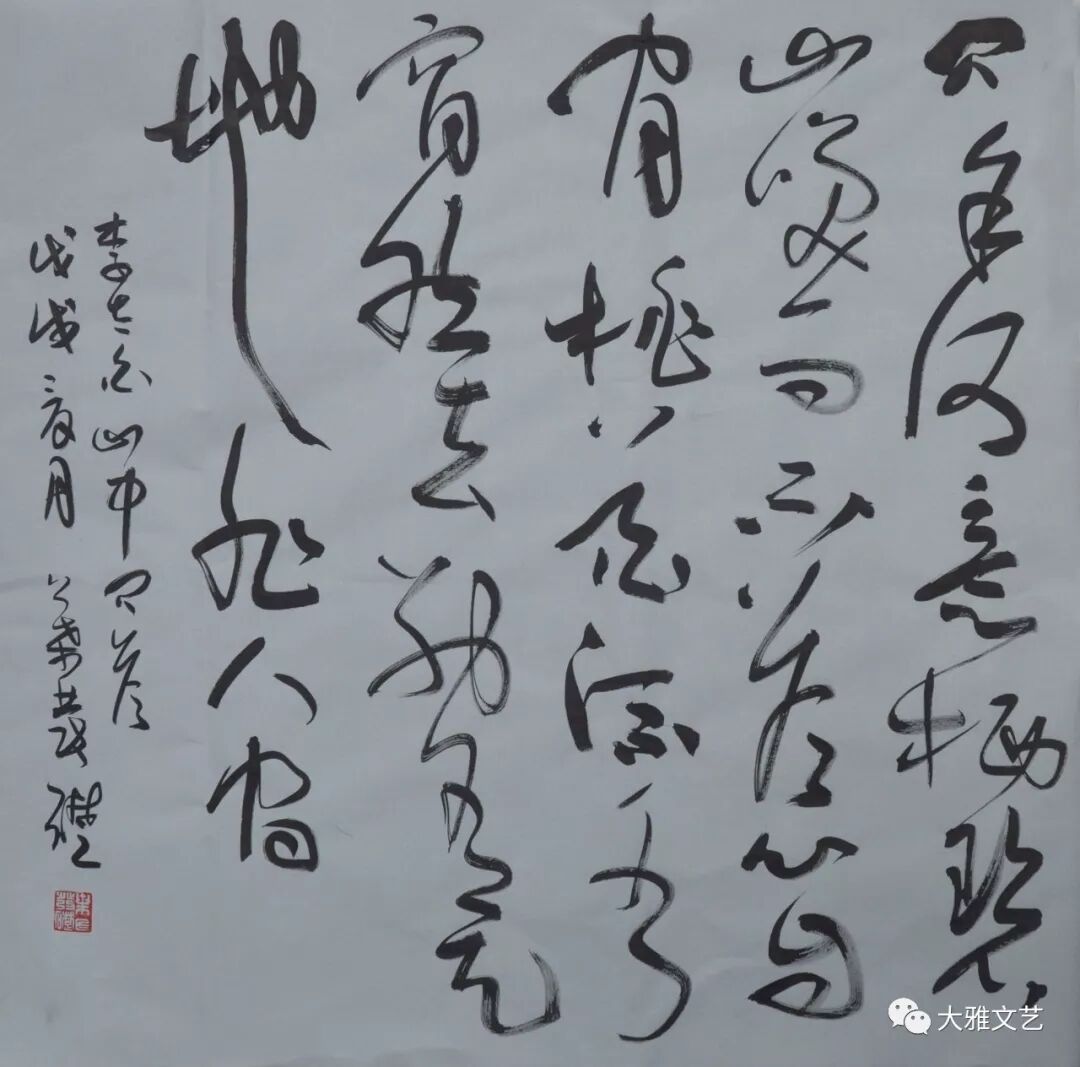 问余何意栖碧
山笑而不答心自
闲桃花流水
窅然去别有天
地非人间
李太白山中问答
戊戌月
大雅文艺